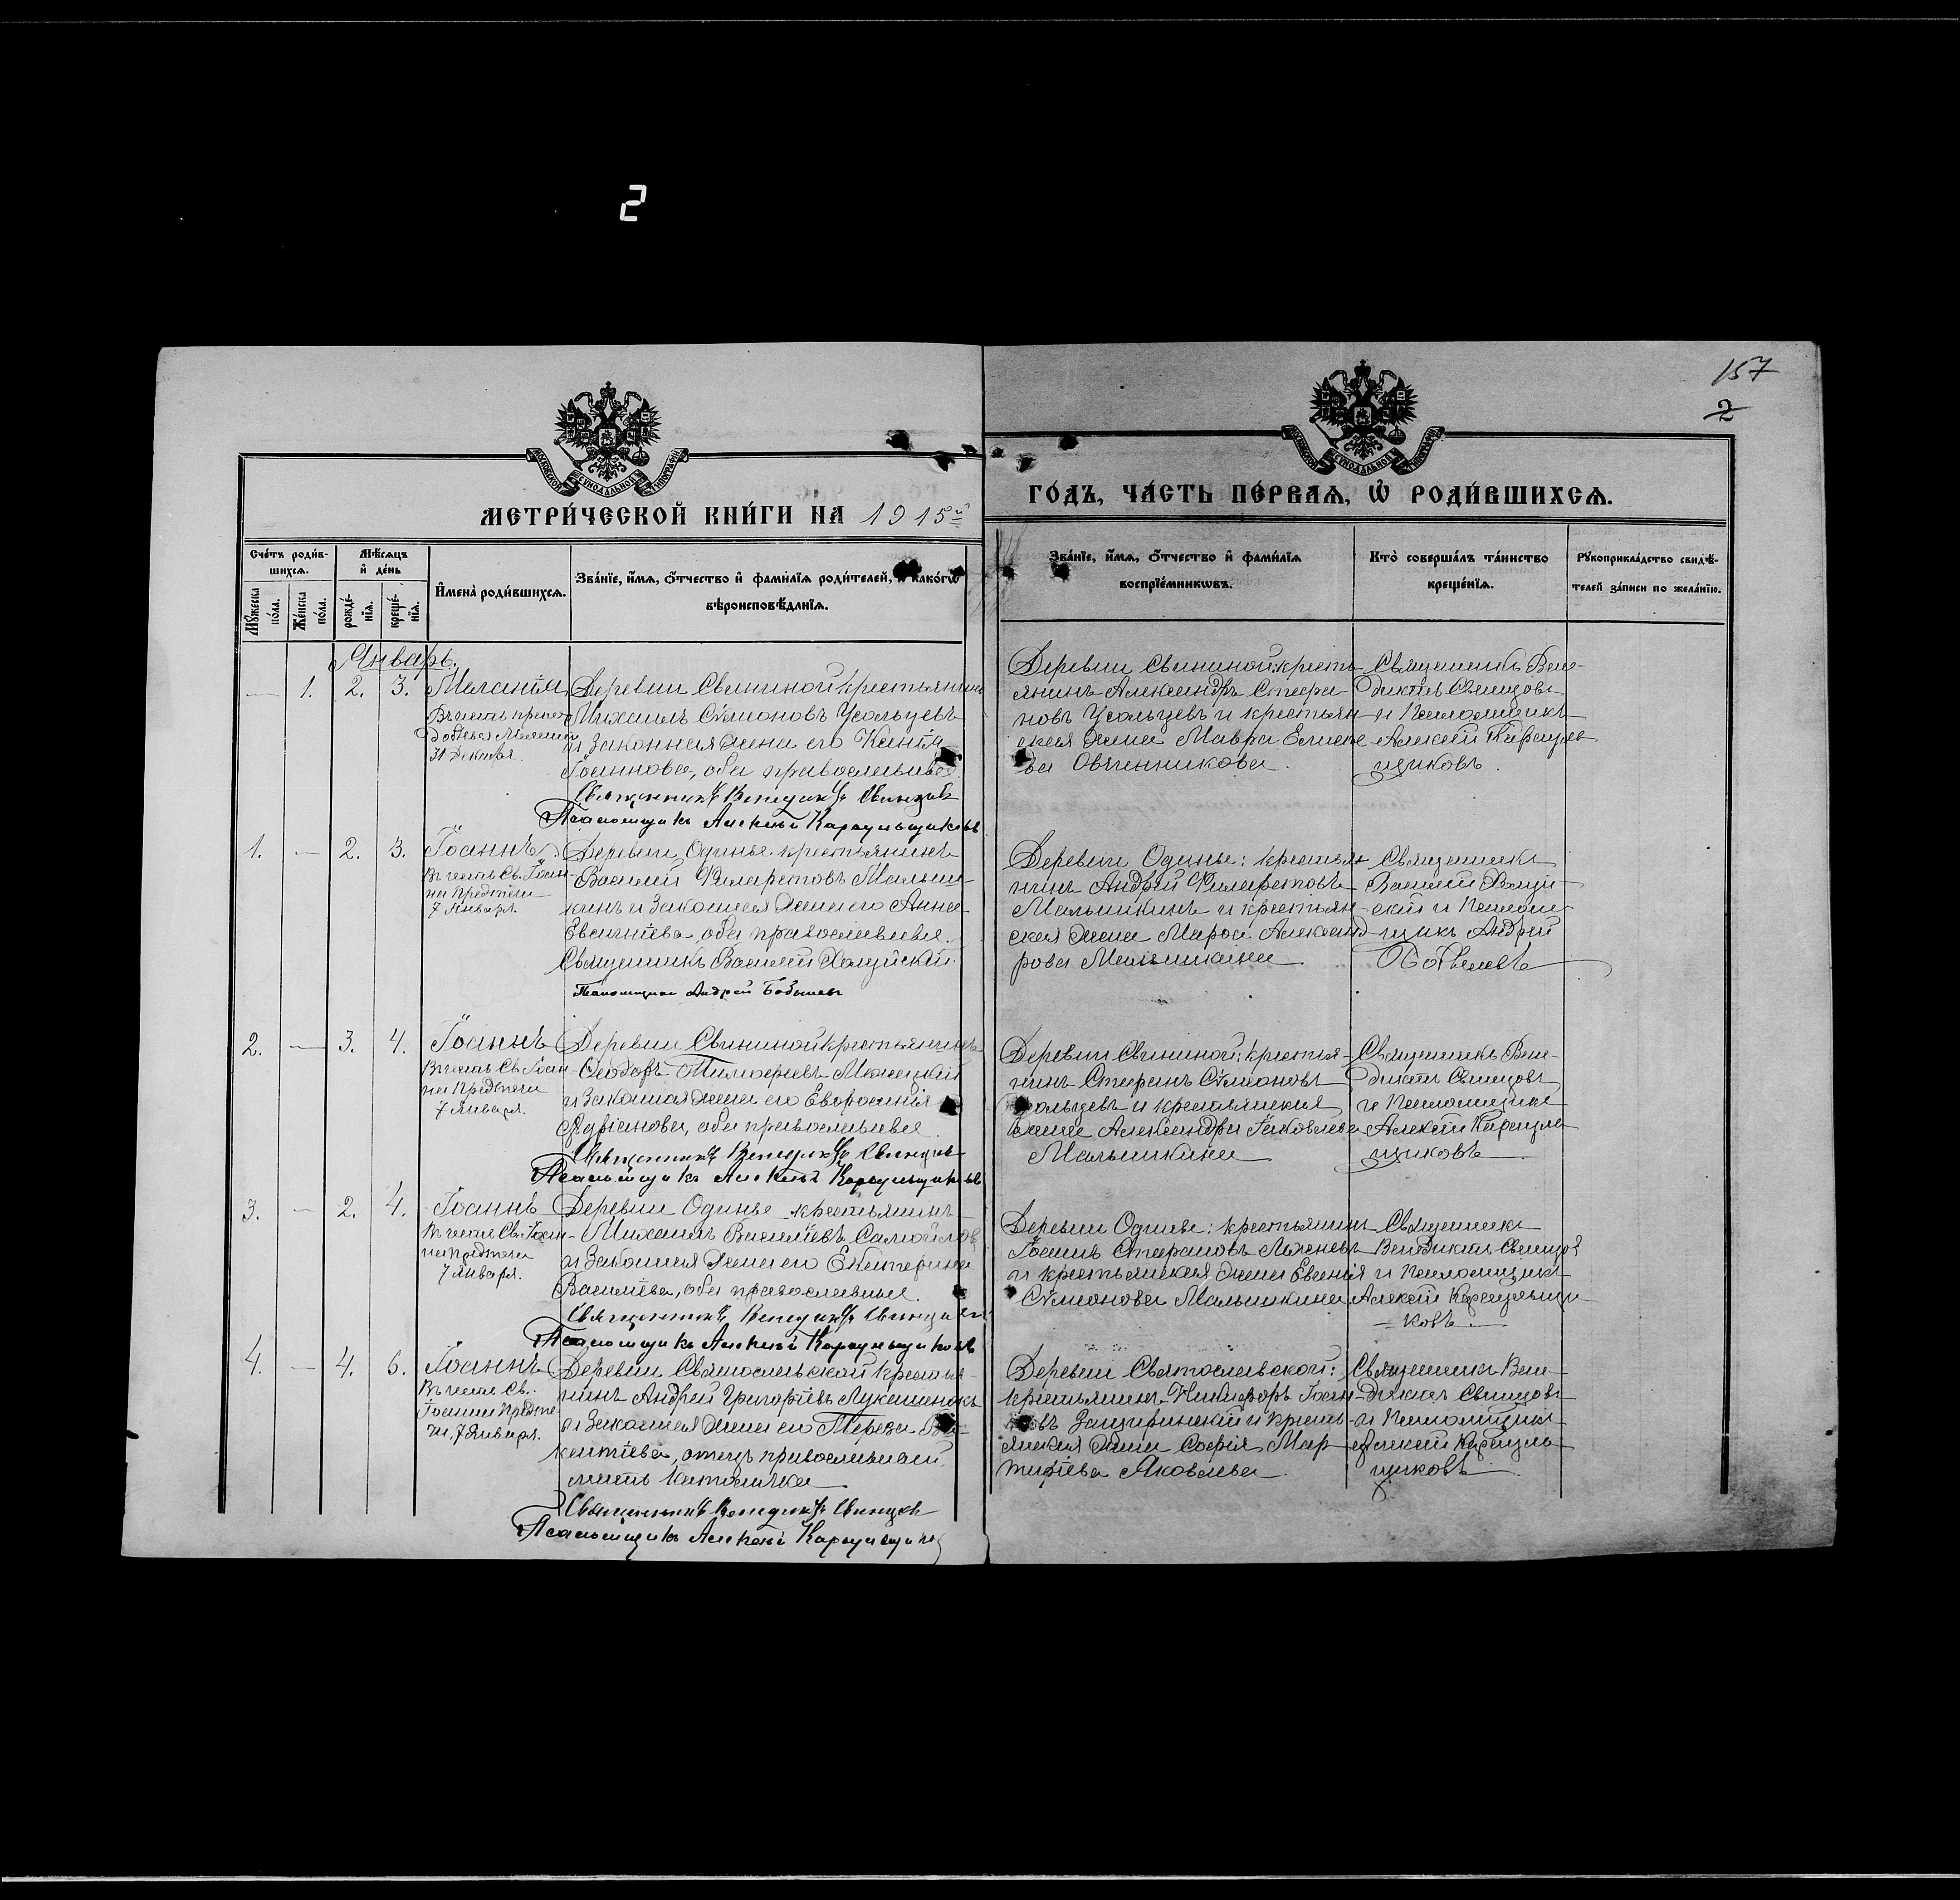 2
157
2
МОСКОВСКОЙ СѴНОДАЛЬНОЙ ТИПОГРАФІИ
МОСКОВСКОЙ СѴНОДАЛЬНОЙ ТИПОГРАФІИ
МЕТРИ́ЧЕСКОЙ КНИ́ГИ НА 1915й
ГО́ДЪ, ЧА́СТЬ ПЕ́РВАѦ, Ѡ҆ РОДИ́ВШИХСѦ.
Сче́тъ роди́в-
шихсѧ.
Мѣ́сѧцъ
и҆ де́нь
Мꙋ́жеска
по́ла.
Же́нска
по́ла.
рожде́-
нїѧ.
креще́-
нїѧ.
И҆мена̀ роди́вшихсѧ.
Зва́нїе, и҆́мѧ, ѻ҆́тчество и҆ фами́лїѧ роди́телей, и҆ како́гѡ
вѣроисповѣ́данїѧ.
Зва́нїе, и҆́мѧ, ѻ҆́тчество и҆ фами́лїѧ
воспрїе́мникѡвъ.
Кто̀ соверша́лъ та́инство
креще́нїѧ.
Рꙋкоприкла́дство свидѣ́-
телей за́писи по жела́нїю.
Январь.
— 1. 2. 3. Меланія
Въ честь препод
31 Декабря.
Деревни Свининой крестьянинъ
Михаилъ Сѵмеоновъ Усольцевъ
и законная жена его Ксенія
Іоаннова, оба православные
Священникъ Венедиктъ Свинцовъ
Псаломщикъ Алексѣй Караульщиковъ
Деревни Свининой: кресть-
янинъ Александръ Стефа-
новъ Усольцевъ и крестьян-
ская жена Мавра
ва Овчинникова.
Священникъ Вене-
диктъ Свинцовъ
и Псаломщикъ
Алексѣй Карауль-
щиковъ.
1. — 2. 3. Іоаннъ
Въ честь Св. Іоан-
на Предтечи
7 Января.
Деревни Одинье крестьянинъ
Василій Филаретовъ Малыш-
кинъ и законная жена его Анна
Евсигніева, оба православные.
Священникъ Василій
Псаломщикъ Андрей
Деревни Одинье: крестьян-
нинъ Андрей Филаретовъ
Малышкинъ и крестьян-
ская жена Александ-
рова Малышкина
Священникъ
Василій
ский и Псалом-
щикъ Андрей
2. — 3. 4. Іоаннъ
Въ честь Св. Іоан-
на Предтечи
7 Января.
Деревни Свининой крестьянинъ
Ѳеодоръ Тимофеевъ
и законная жена его Евфросинія
Адріанова, оба православные.
Священникъ Венедиктъ Свинцовъ
Псаломщикъ Алексѣй Караульщиковъ
Деревни Свининой: крестья-
нинъ Стефанъ Сѵмеоновъ
Усольцевъ и крестьянская
жена Александра Іаковлева
Малышкина
Священникъ Вене-
диктъ Свинцовъ
и Псаломщикъ
Алексѣй Карауль-
щиковъ
3. — 2. 4. Іоаннъ
Въ честь Св. Іоан-
на Предтечи
7 Января.
Деревни Одинье крестьянинъ
Михаилъ Васильевъ Самойлов
и законная жена его Екатерина
Васильева, оба православные.
Священникъ Венедиктъ Свинцовъ
Псаломщикъ Алексѣй Караульщиковъ
Деревни Одинье: крестьянинъ
Іоаннъ Стефановъ
и крестьянская жена Евгенія
Сѵмеонова Малышкина
Священникъ
Венедиктъ Свинцов
и Псаломщикъ
Алексѣй Караульщи-
ковъ
4. — 4. 6. Іоаннъ
Въ честь Св.
Іоанна Предте-
чи, 7 Января.
Деревни Святославской крестья-
нинъ Андрей Григорьевъ Лукашенокъ
и законная жена его Тереза Ви-
кентіева, отецъ православный,
мать католичка
Священникъ Венедиктъ Свинцовъ
Псаломщикъ Алексѣй Караульщик
Деревни Святославской:
крестьянинъ Никифоръ Іоан-
новъ и кресть-
янская жена Софія Мар-
Яковлева
Священникъ Вене-
диктъ Свинцовъ
и Псаломщикъ
Алексѣй Карауль-
щиковъ